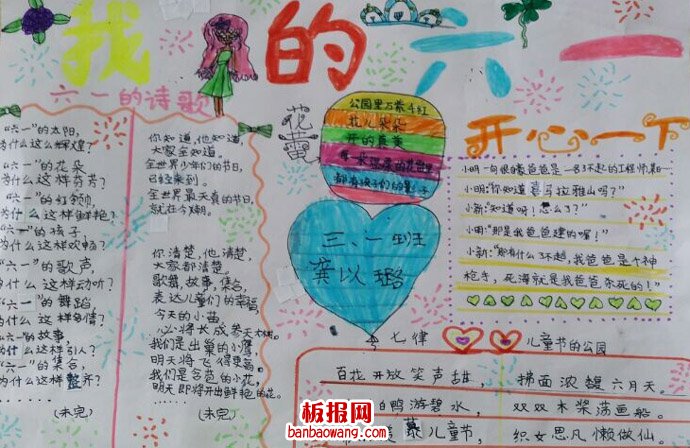 我的六一
六一的诗歌
“六一”的太阳,
为什么这么辉煌?
“六一”的花朵
为什么这样芬芳?
“六一”的红领
为什么这样鲜艳?
“六一”的孩子
为什么这样欢畅?
“六一”的歌声,
为什么这样动听?
“六一”的舞蹈,
为什么这样多情?
“六一”的故事,
为什么这样引人?
“六一”的集合,
为什么这样整齐?
(未完)
你知道,他知道,
大家全知道。
全世界少年们的节日,
已经来到。
全世界最天真的节日,
就在今朝。
你清楚,他清楚,
大家都清楚。
歌舞,故事,集合,
表达儿童们的幸福
今天的小苗,
必将长成参天大树。
我们是出巢的小鹰,
明天将飞得更高。
我们是含苞的小花,
明天即将开出鲜艳的花。
(未完)
花蕾
公园里万紫千红
花儿朵朵
开的最美
每一朵
都有孩子们的影子
三、一班
龚以璐
开心一下
小明向
小明:“你知道喜马拉雅山吗?”
小新:“知道呀!怎么了?”
小明:“那是我爸爸建的喔!”
小新:“那有什么了不起,我爸爸是个神
枪手,死海就是我爸爸杀死的!”
七律
儿童节的公园
百花开放笑声甜,拂面浓馥六月天。
白鸭游碧水,双双木桨荡画船。
儿童节,织女思凡懒做仙。
板报网
banbaowang.com